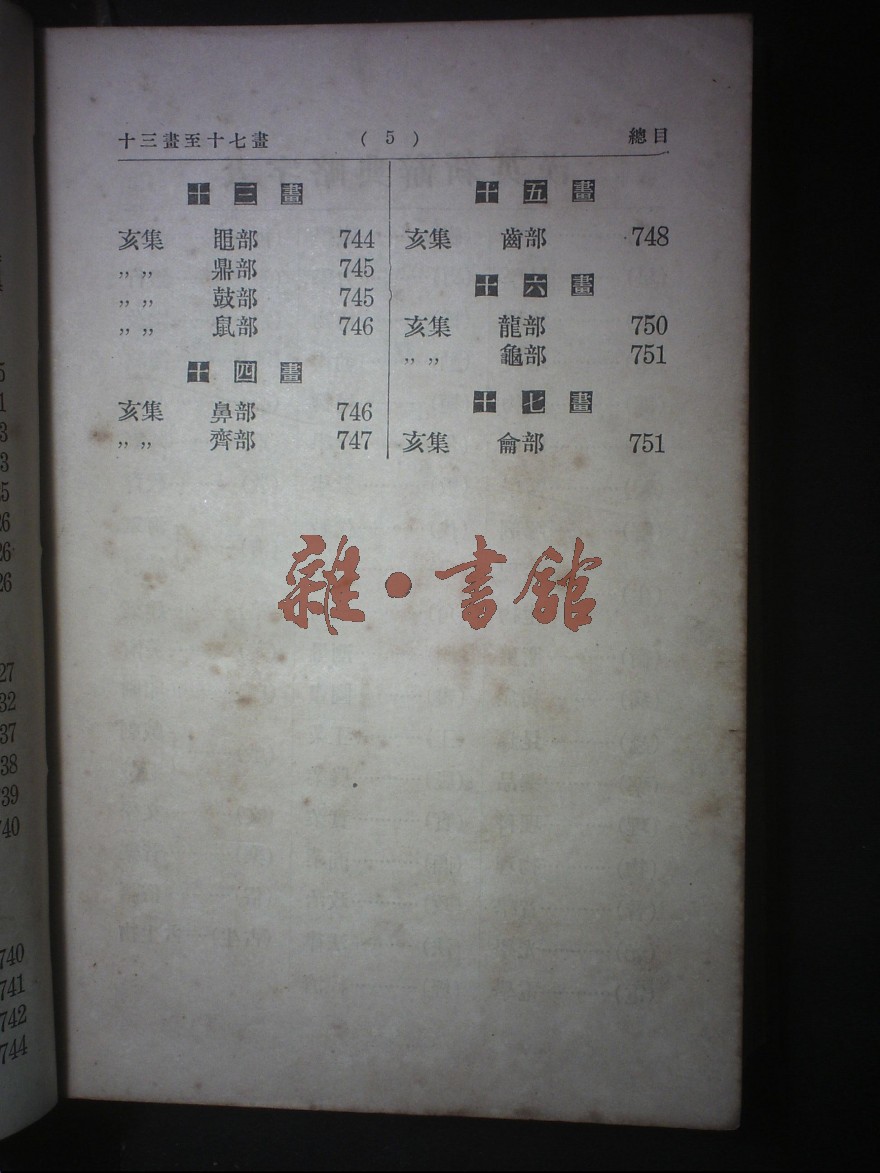 十三畫至十七畫 ( 5 ) 總目
十三畫
亥集 黽部 744
,, ,, 鼎部 745
,, ,, 鼓部 745
,, ,, 鼠部 746
十四畫
亥集 鼻部 746
,, ,, 齊部 747
十五畫
亥集 齒部 748
十六畫
亥集 龍部 750
,, ,, 龜部 751
十七畫
亥集 龠部 751
雜·書館
27
32
37
38
39
740
740
741
742
744